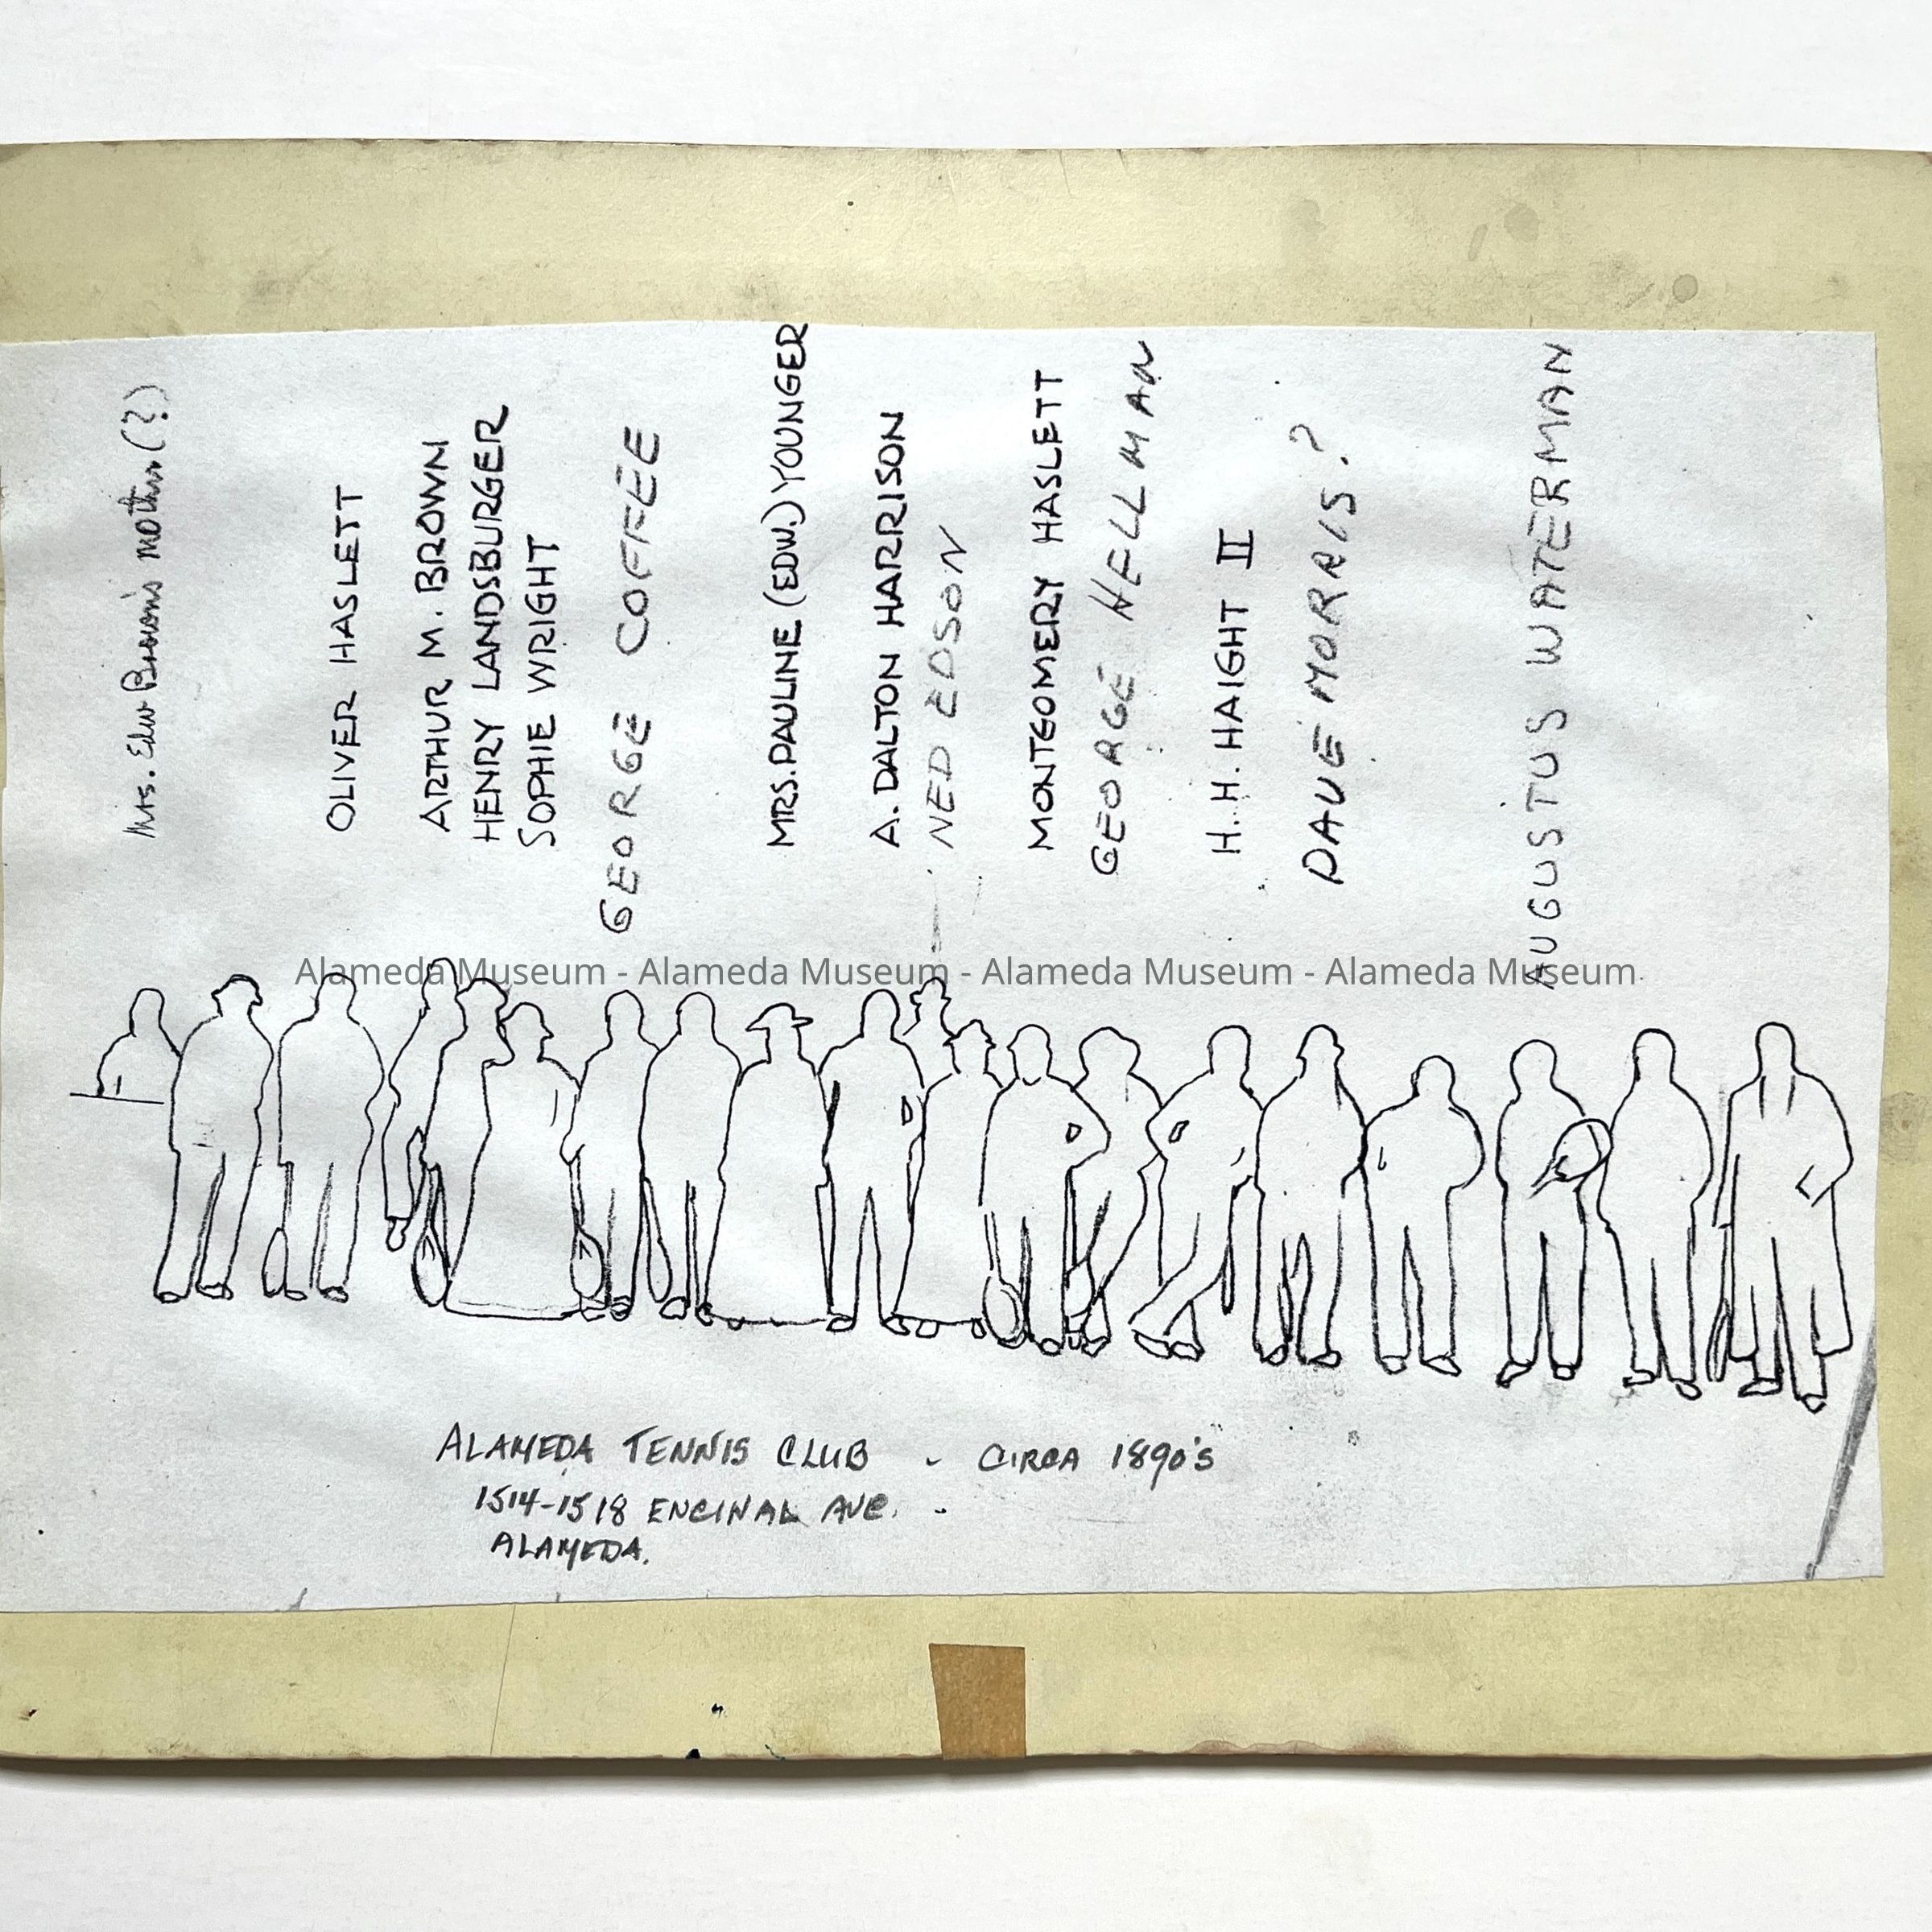 Mrs. Edw Brown's mother (?)
OLIVER HASLETT
ARTHUR M. BROWN
HENRY LANDSBURGER
SOPHIE WRIGHT
GEORGE COFFEE
MRS. PAULINE (EDW.) YOUNGER
A. DALTON HARRISON
NED EDSON
MONTGOMERY HASLETT
GEORGE HELLMAN
H. H. HAIGHT II
DAVE MORRIS?
AUGUSTUS WATERMAN
Alameda Museum - Alameda Museum - Alameda Museum - Alameda Museum
ALAMEDA TENNIS CLUB - CIRCA 1890's
1514-1518 ENCINAL AVE. -
ALAMEDA.